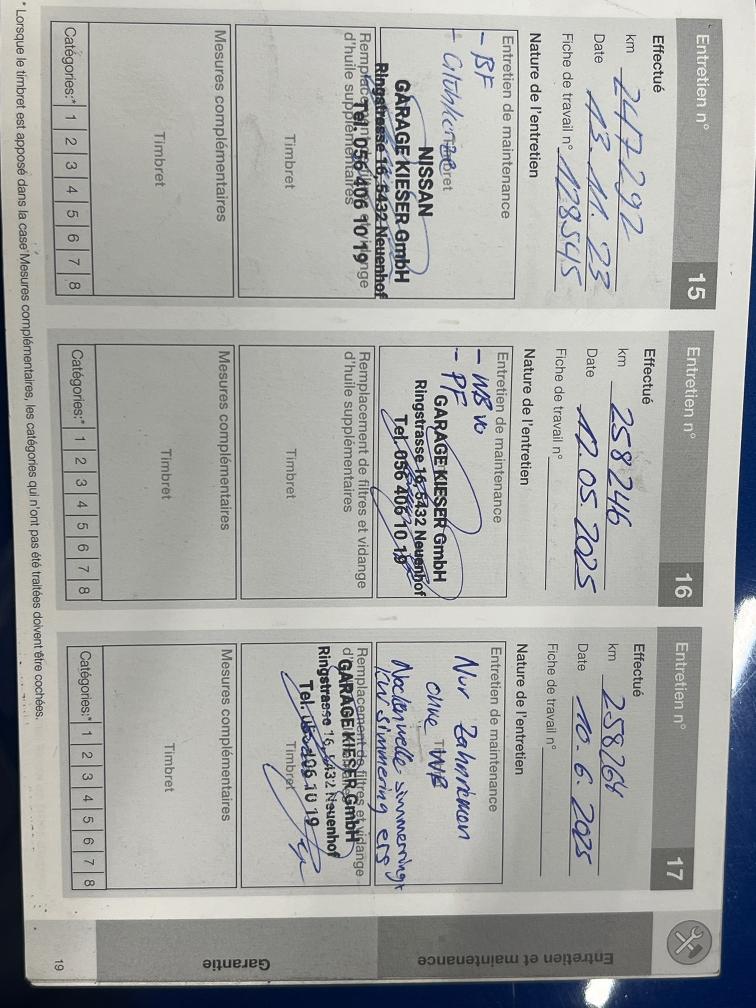 Entretien n° 15
Effectué
km 247292
Date 13.11.23
Fiche de travail n° 128545
Nature de l'entretien
Entretien de maintenance
- BF
Timbret
NISSAN
GARAGE KIESER GmbH
Ringstrasse 16, 5432 Neuenhof
Tel. 056 406 10 19
Remplacement de filtres et vidange
d'huile supplémentaires
Timbret
Mesures complémentaires
Timbret
Catégories:* 1 2 3 4 5 6 7 8
Entretien n° 16
Effectué
km 258246
Date 12.05.2025
Fiche de travail n°
Nature de l'entretien
Entretien de maintenance
- WB vo
- PF
GARAGE KIESER GmbH
Ringstrasse 16, 5432 Neuenhof
Tel. 056 406 10 19
Remplacement de filtres et vidange
d'huile supplémentaires
Timbret
Mesures complémentaires
Timbret
Catégories:* 1 2 3 4 5 6 7 8
Entretien n° 17
Effectué
km 258264
Date 10.6.2025
Fiche de travail n°
Nature de l'entretien
Entretien de maintenance
Nur Zahnriemen
ohne
Nockenwelle simmerring+
KW simmering ers
Remplacement de filtres et vidange
GARAGE KIESER GmbH
Ringstrasse 16, 5432 Neuenhof
Tel. 056 406 10 19
Timbret
Mesures complémentaires
Timbret
Catégories:* 1 2 3 4 5 6 7 8
* Lorsque le timbret est apposé dans la case Mesures complémentaires, les catégories qui n'ont pas été traitées doivent être cochées.
Entretien et maintenance
Garantie
19